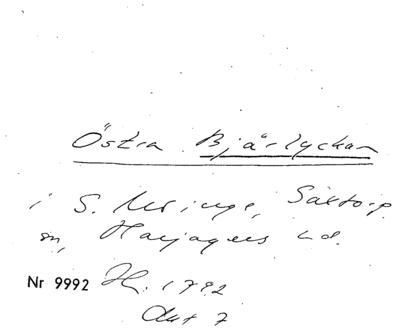 Östra Bjärlyckan
i S. Möinge, Saxtorp
sn, Harjagers hd.
Nr 9992 H. 1792
Akt 7